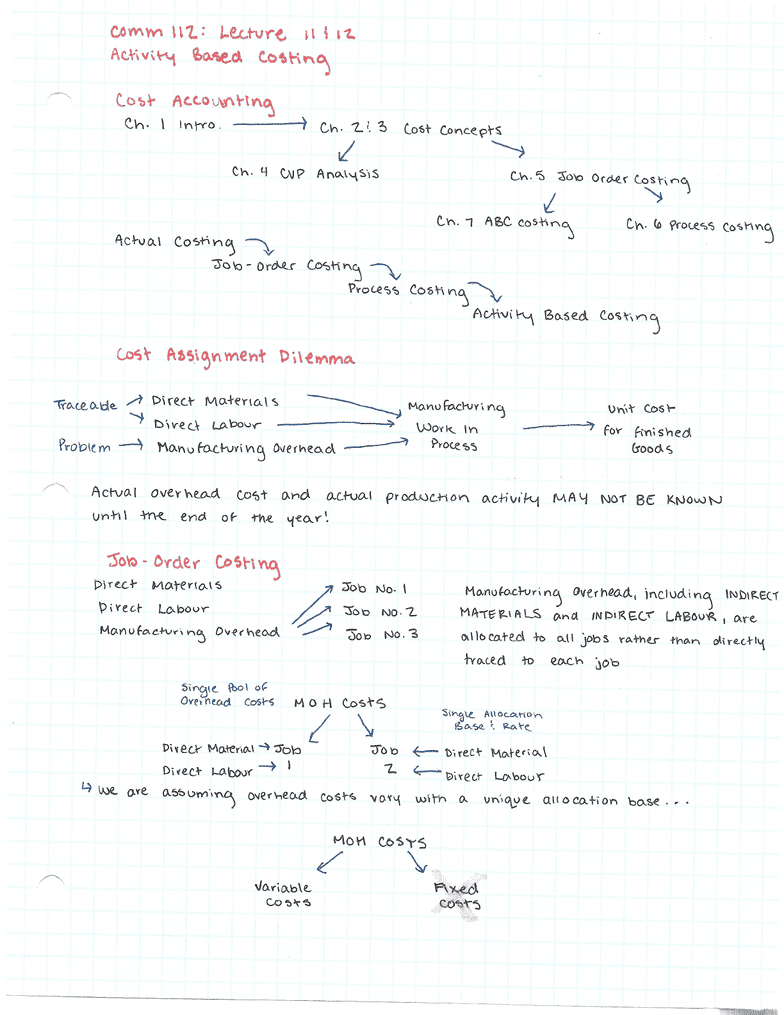 Comm 112: Lecture 11 & 12
Activity Based Costing
Cost Accounting
Ch. 1 Intro. → Ch. 2 & 3 Cost Concepts
Ch. 4 CVP Analysis
Ch. 5 Job Order Costing
Ch. 7 ABC costing
Ch. 6 Process Costing
Actual Costing
Job-Order Costing
Process Costing
Activity Based Costing
Cost Assignment Dilemma
Traceable
Direct Materials
Direct Labour
Problem → Manufacturing Overhead
Manufacturing
Work In
Process
Unit Cost
for Finished
Goods
Actual overhead cost and actual production activity MAY NOT BE KNOWN
until the end of the year!
Job-Order Costing
Direct Materials
Direct Labour
Manufacturing Overhead
Job No. 1
Job No. 2
Job No. 3
Manufacturing Overhead, including INDIRECT
MATERIALS and INDIRECT LABOUR, are
allocated to all jobs rather than directly
traced to each job
Single Pool of
Overhead Costs
MOH Costs
Single Allocation
Base & Rate
Direct Material → Job
Direct Labour → 1
Job ← Direct Material
2 ← Direct Labour
↳ we are assuming overhead costs vary with a unique allocation base...
MOH COSTS
Variable
Costs
Fixed
costs